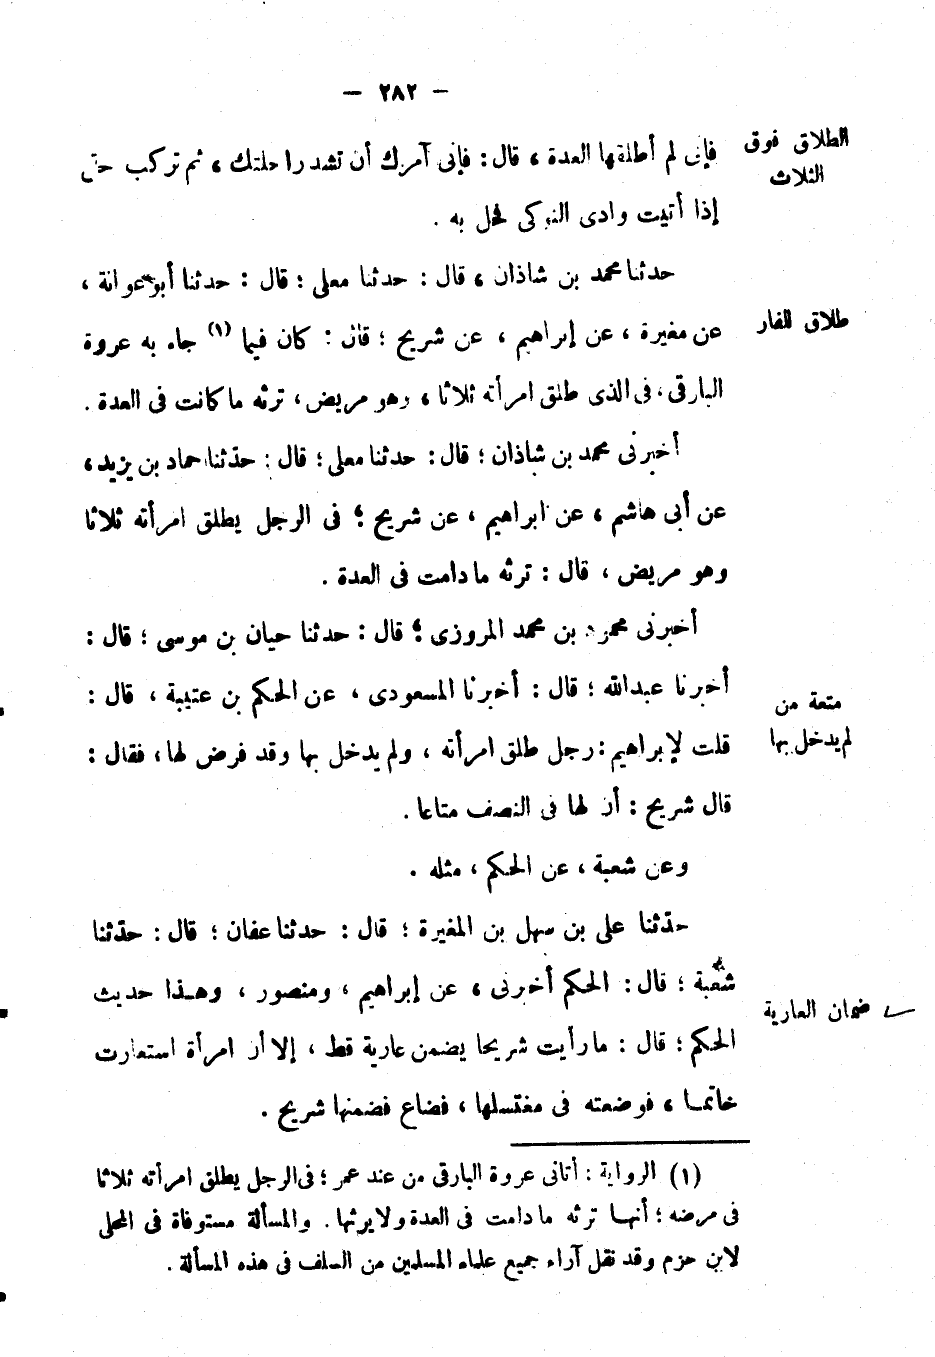 — ٢٨٢ —
الطلاق فوق
الثلاث
فإنى لم أطلقها العدة ، قال : فإنى آمرك أن تشد راحلتك ، ثم تركب حتى
إذا أتيت وادى النوكى فحل به .
حدثنا محمد بن شاذان ، قال : حدثنا معلى ؛ قال : حدثنا أبو عوانة ،
طلاق الفار
عن مغيرة ، عن إبراهيم ، عن شريح ؛ قال : كان فيما (١) جاء به عروة
البارقى ، فى الذى طلق امرأته ثلاثا ، وهو مريض ، ترثه ما كانت فى العدة .
أخبرنى محمد بن شاذان ؛ قال : حدثنا معلى ؛ قال : حدّثنا حماد بن يزيد ،
عن أبى هاشم ، عن ابراهيم ، عن شريح ؛ فى الرجل يطلق امرأته ثلاثا
وهو مريض ، قال : ترثه ما دامت فى العدة .
أخبرنى محمود بن محمد المروزى ؛ قال : حدثنا حيان بن موسى ؛ قال :
أخبرنا عبدالله ؛ قال : أخبرنا المسعودى ، عن الحكم بن عتيبة ، قال :
متعة من
لم يدخل بها
قلت لإبراهيم : رجل طلق امرأته ، ولم يدخل بها وقد فرض لها ، فقال :
قال شريح : أن لها فى النصف متاعا .
وعن شعبة ، عن الحكم ، مثله .
حدّثنا على بن سهل بن المغيرة ؛ قال : حدثنا عفان ؛ قال : حدّثنا
شعبة ؛ قال : الحكم أخبرنى ، عن إبراهيم ، ومنصور ، وهـذا حديث
ضمان العارية
الحكم ؛ قال : ما رأيت شريحا يضمن عارية قط ، إلا أن امرأة استعارت
خاتمـا ، فوضعته فى مغتسلها ، فضاع فضمنها شريح .
(١) الرواية : أتانى عروة البارقى من عند عمر ؛ فى الرجل يطلق امرأته ثلاثا
فى مرضه ؛ أنهـا ترثه ما دامت فى العدة ولا يرثها . والمسألة مستوفاة فى المحلى
لابن حزم وقد نقل آراء جميع علماء المسلمين من السلف فى هذه المسألة .